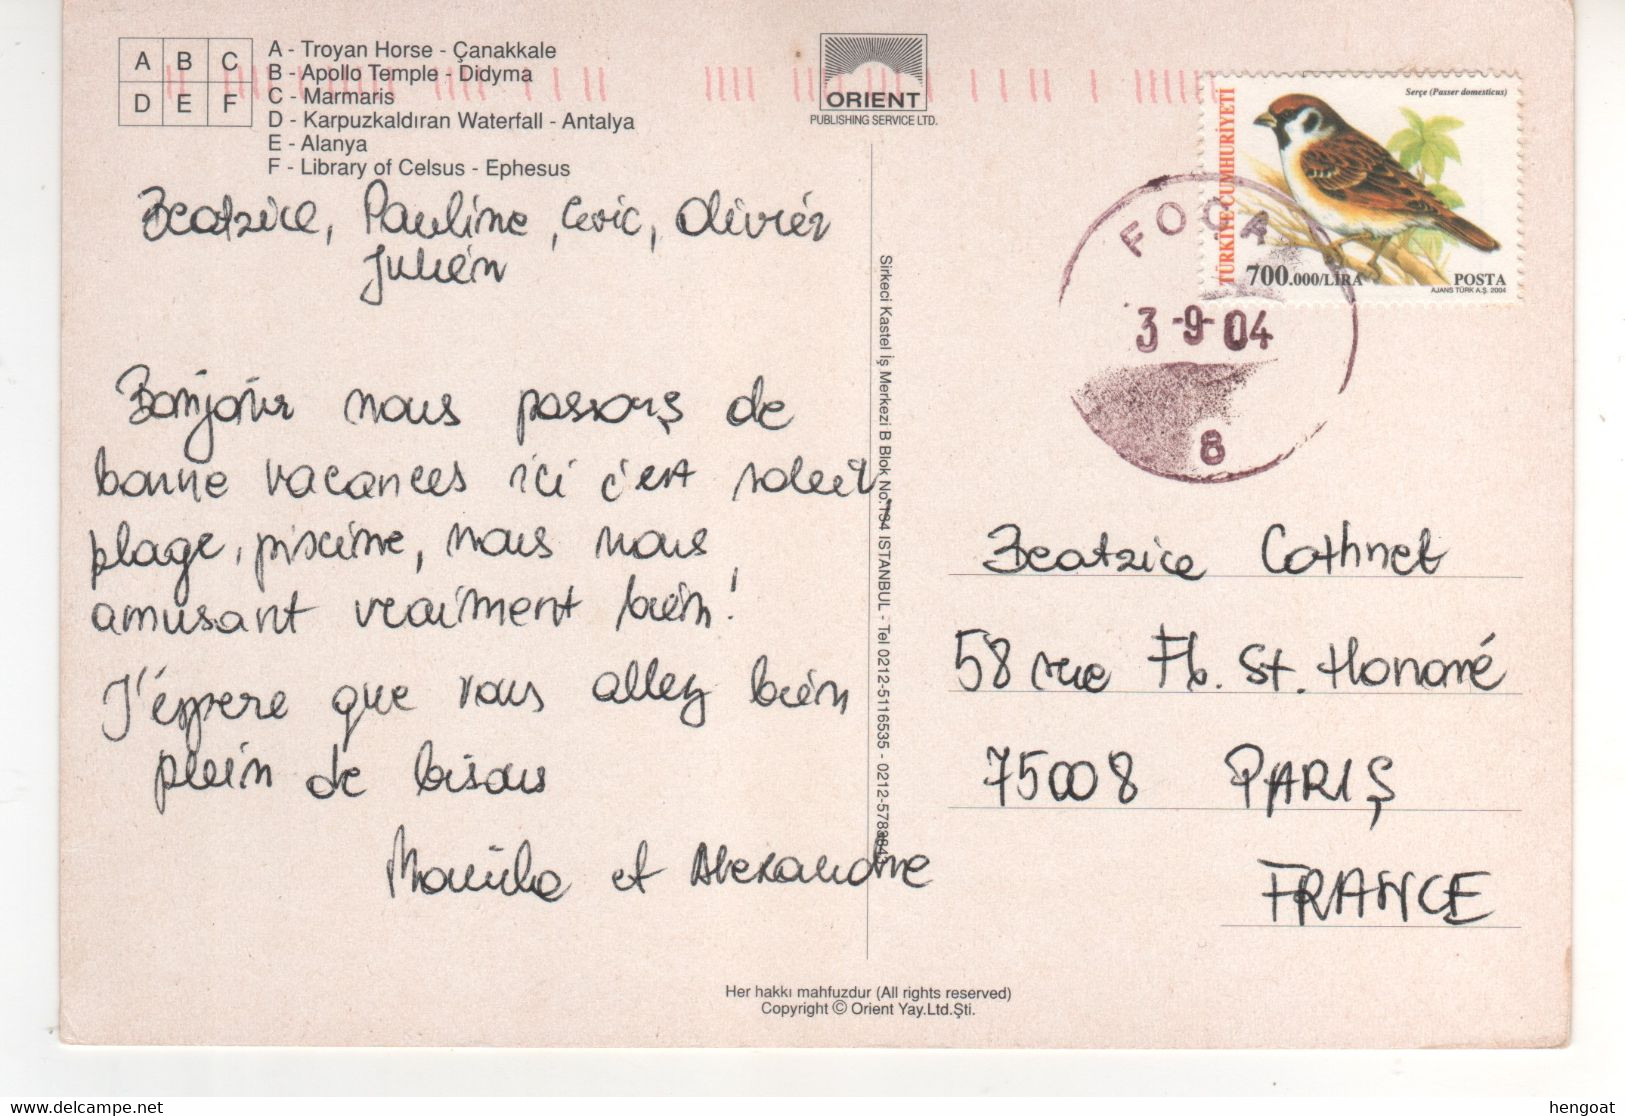 A B C
D E F
A - Troyan Horse - Çanakkale
B - Apollo Temple - Didyma
C - Marmaris
D - Karpuzkaldıran Waterfall - Antalya
E - Alanya
F - Library of Celsus - Ephesus
ORIENT
PUBLISHING SERVICE LTD.
TÜRKİYE CUMHURİYETİ
Serçe (Passer domesticus)
700.000/LİRA
POSTA
AJANS TÜRK A.Ş. 2004
FOÇA
3-9-04
8
Beatrice, Pauline, Olivier
Julien
Bonjour nous passons de
bonne vacances ici c'est soleil,
plage, piscine, nous nous
amusant vraiment bien!
J'éspere que vous allez bien
plein de bisous
et Alexandre
Sirkeci Kastel İş Merkezi B Blok No.134 ISTANBUL - Tel 0212-5116535 - 0212-578
Beatrice Cathnet
58 rue Fb. St. Honoré
75008 PARIS
FRANCE
Her hakkı mahfuzdur (All rights reserved)
Copyright © Orient Yay.Ltd.Şti.
delcampe.net
hengoat